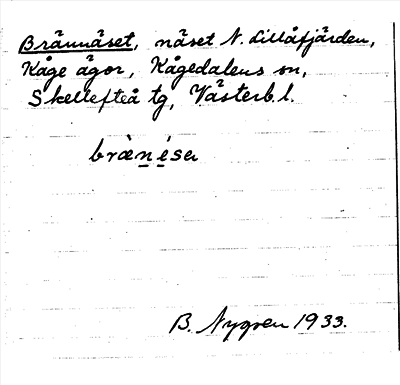 Brännäset, näset N. Lillåfjärden,
Kåge ägor, Kågedalens sn,
Skellefteå tg, Västerb. l.
brænésa
B. Nygren 1933.